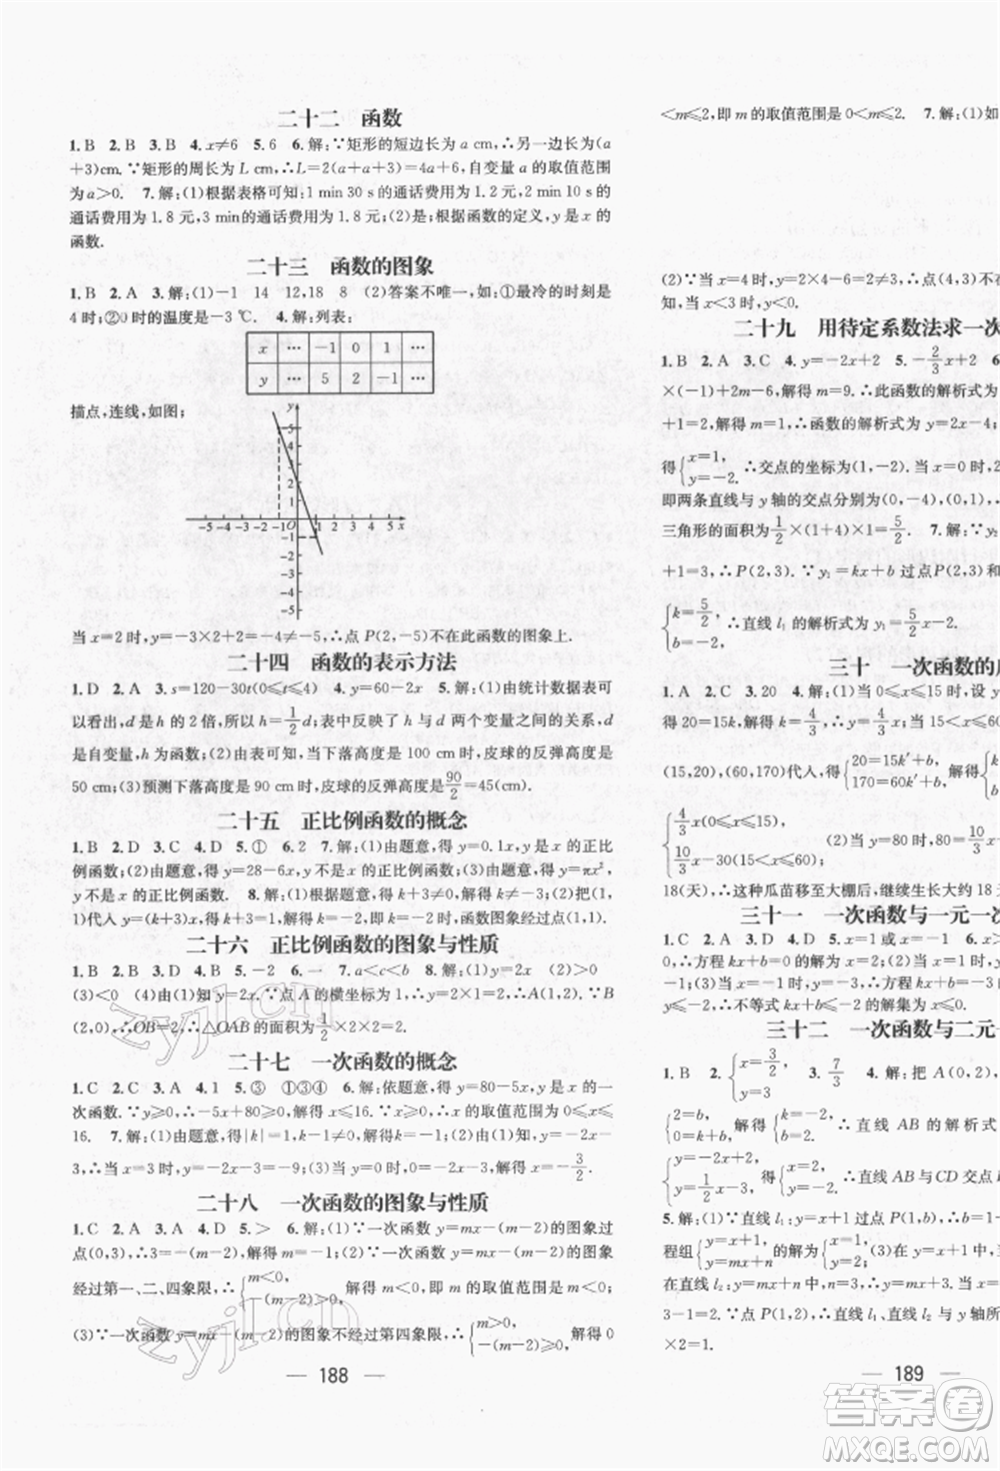 二十二 函数
1.B 2.B 3.B 4.x≠6 5.6 6.解:∵矩形的短边长为 a cm,∴另一边长为(a
+3)cm.∵矩形的周长为 L cm,∴L=2(a+a+3)=4a+6,自变量 a 的取值范围
为a>0. 7.解:(1)根据表格可知:1 min 30 s 的通话费用为 1.2 元,2 min 50 s 的
通话费用为 1.8 元,3 min的通话费用为 1.8 元;(2)是;根据函数的定义,y 是 x 的
函数.
二十三 函数的图象
1.B 2.A 3.解:(1)-1 14 12,18 8 (2)答案不唯一,如:①最冷的时刻是
4 时;②0 时的温度是-3 ℃. 4.解:列表:
x … -1 0 1 …
y … 5 2 -1 …
描点,连线,如图:
y
5
4
3
2
1
-5 -4 -3 -2 -1 O 1 2 3 4 5 x
-1
-2
-3
-4
-5
当 x=2 时,y=-3×2+1=-5,∴点 P(2,-5)不在此函数的图象上.
二十四 函数的表示方法
1.D 2.A 3.s=120-30t(0≤t≤4) 4.y=60-2x 5.解:(1)由统计数据表可
以看出,d 是 h 的 2 倍,所以 h=1/2 d;表中反映了 h 与 d 两个变量之间的关系,d
是自变量,h 为函数;(2)由表可知,当下落高度是 100 cm时,皮球的反弹高度是
50 cm;(3)预测下落高度是 90 cm 时,皮球的反弹高度是90/2=45(cm).
二十五 正比例函数的概念
1.B 2.D 3.A 4.C 5.① 6.2 7.解:(1)由题意,可得 y=0.1x,y 是 x 的正比
例函数;(2)由题意,可得y=28-6x,y 不是 x 的正比例函数;(3)由题意,可得y=πx²,
y 不是 x 的正比例函数. 8.解:(1)根据题意,得 k+3=0,解得 k=-3;(2)把(1,
1)代入 y=(k+3)x,得 k+3=1,解得 k=-2,函数图象经过点(1,1).
二十六 正比例函数的图象与性质
1.B 2.B 3.B 4.B 5.-2 6.一 7.a<c<b 8.解:(1)如图所示; (2)>0
(3)<0 (4)由(1)得 y=2x.∵点 A 的横坐标为 1,∴点 A 的纵坐标为 2.∵B
(2,0),∴OB=2,∴△OAB的面积为1/2×2×2=2.
二十七 一次函数的概念
1.C 2.C 3.A 4.1 5.③ ①③④ 6.解:依题意,得 y=80-5x,y 是 x 的一
次函数.∵y≥0,∴-5x+80≥0,解得 x≤16.∵x≥0,∴x 的取值范围是0≤x≤
16. 7.解:(1)由题意,得|k|-2=1,且 k-3≠0,解得k=-3;(2)当 k=-
3,∴当 x=3 时,y=-18+9=-9;(3)当 y=0 时,0=-6x-9,解得 x=-3/2.
二十八 一次函数的图象与性质
1.C 2.C 3.A 4.D 5.> 6.解:(1)∵一次函数 y=mx-(m-2)的图象过
点(0,3),∴3=-(m-2),∴m=-1;(2)∵一次函数 y=mx-(m-2)的图象
经过第一、二、四象限,∴{m<0, -(m-2)>0, 解得 m<0,即 m 的取值范围是 m<0;
(3)∵一次函数 y=mx-(m-2)的图象不经过第四象限,∴{m>0, -(m-2)≥0, 解得 0
— 188 —
<m≤2,即 m 的取值范围是 0<m≤2. 7.解:(1)如
(2)∵当 x=4 时,y=2×4-6=2,∴点(4,3)不在
知,当 x<3 时,y<0.
二十九 用待定系数法求一次
1.B 2.A 3.C 4.y=-2x+2 5.-2/3x+2 6
×(-1)+2m-6,解得 m=9.∴此函数的解析式为
+1=2,解得 m=1,∴函数的解析式为 y=2x-4;
得{x=1, y=-2. ∴交点的坐标为(1,-2).当x=0时,
即两条直线与 y 轴的交点分别为(0,-4),(0,
三角形的面积为1/2×(1+4)×1=5/2. 7.解:∵
+1=3,∴P(2,3).∵y₂=kx+b 过点P(2,3),
{k=5/2, b=-2. ∴直线 l₁ 的解析式为 y₁=5/2x-2.
三十 一次函数的
1.A 2.C 3.20 4.解:(1)当 0≤x≤15时,设 y
得 20=15k,解得 k=4/3,∴y=4/3x;当 15<x≤
(15,20),(60,170)代入,得{20=15k′+b, 170=60k′+b, 解得
{4/3x(0≤x≤15), 10/3x-30(15<x≤60); (2)当 y=80 时,80=10/3
18(天),∴这种瓜苗移至大棚后,继续生长大约 18 天
三十一 一次函数与一元一次
1.C 2.A 3.D 4.D 5.x=1或x=-1 6.x>
0),∴方程 kx+b=0 的解为 x=-2;(2)∵
-1,∴方程 kx+b=-3
y≤-2,∴不等式 kx+b≤-2 的解集为 x≤0.
三十二 一次函数与二元
1.B 2.{x=3/2, 3.7/3 4.解:把 A(0,2),
{2=b, 0=k+b, ∴{k=-2, b=2, ∴直线 AB 的解析式
得{x=2, y=-2. ∴直线 AB 与 CD 交点
5.解:(1)∵直线 l₁:y=x+1过点 P(1,b),
程组{y=x+1, y=mx+n 的解为{x=1, y=2; (3)当 x=
在直线 l₂:y=mx+n 上,∴
3-1=2.∵点 P(1,2),直线 l₁、直线 l₂ 与 y 轴所
×2=1.
— 189 —
zyjl.cn
zyjl.cn
答案圈
MXQE.COM